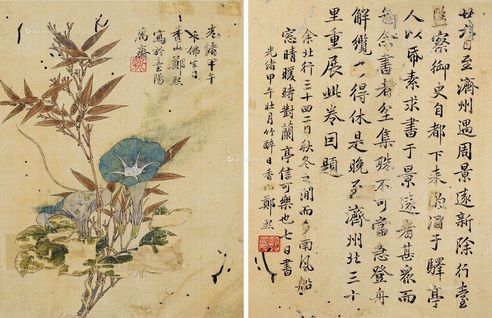 廿八日至濟州遇周景遠新除行臺
監察御史自都下来酌酒于驛亭
人以帋素求書于景遠者甚衆而
乞余書者坌集殊不可當急登舟
解纜乃得休是晚至濟州北三十
里重展此卷因題
余北行三十二日秋冬之間而多南風船
窓晴暖時對蘭亭信可樂也七日書
光緒甲午壮月竹醉日香山鄭熙
光緒甲午
佛生日
香山鄭熙
寫於臺陽
寓齋